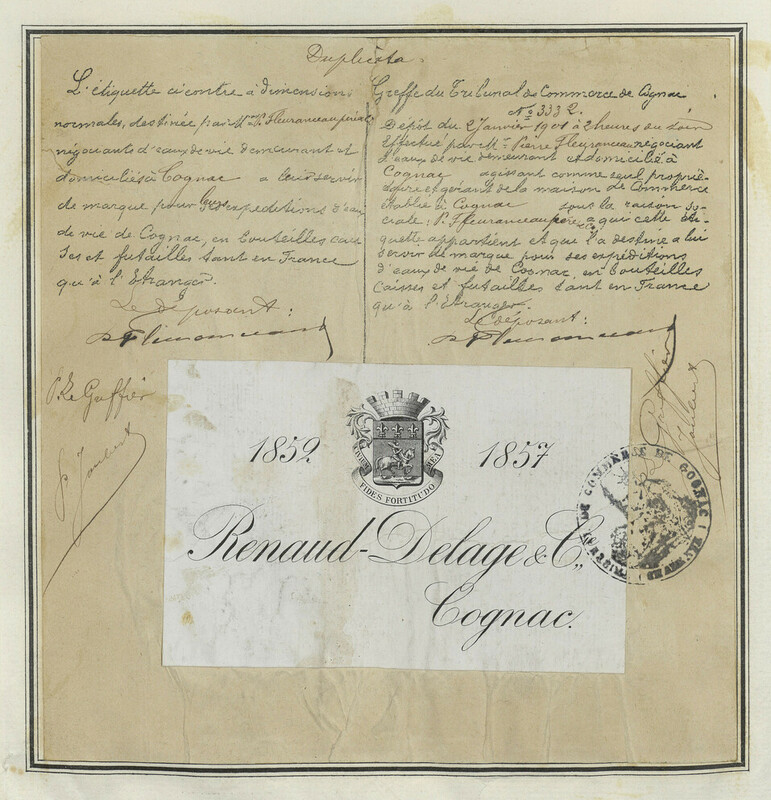 Duplicata.
L'étiquette ci contre à dimensions
normales, destinée par Mr P. Fleuranceau père & Cie
négociants d'eaux de vie demeurant et
domiciliés à Cognac à leur servir
de marque pour leurs expéditions d'eaux
de vie de Cognac, en bouteilles cais
ses et futailles tant en France
qu'à l'Etranger.
Le déposant:
P. Fleuranceau
P. Le Greffier
Greffe du Tribunal de Commerce de Cognac
No 3332.
Dépôt du 2 Janvier 1901 à 2 heures du soir
Effectué par Mr Pierre Fleuranceau négociant
d'eaux de vie demeurant et domicilié à
Cognac agissant comme seul proprié-
taire et gérant de la maison de Commerce
établie à Cognac sous la raison So-
ciale: P. Fleuranceau père & Cie à qui cette éti-
quette appartient et que l'a destine à lui
servir de marque pour ses expéditions
d'eaux de vie de Cognac, en bouteilles
caisses et futailles tant en France
qu'à l'Etranger.
Le déposant:
P. Fleuranceau
Greffier
1852
1857
FIDES FORTITUDO
Renaud-Delage & Co,,
Cognac.
DE COMMERCE DE COGNAC